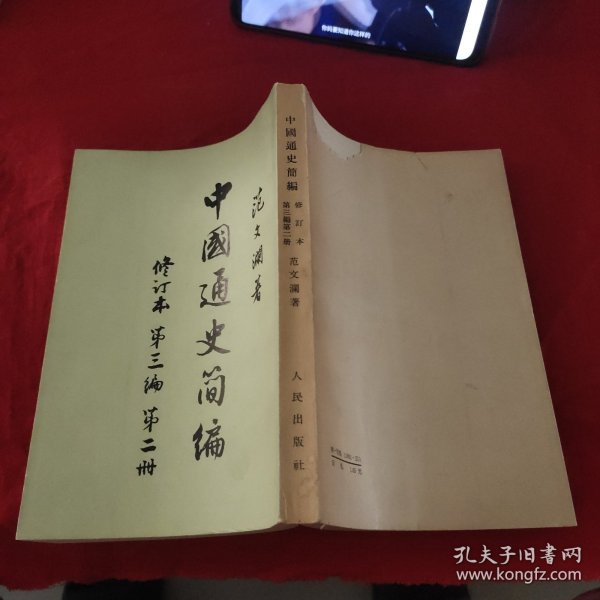 你妈要知道你这样的
范文澜著
中國通史简编
修订本 第三编 第二册
中國通史簡編
修訂本
第三編第二册
范文瀾著
人民出版社
孔夫子旧书网
www.kongfz.com